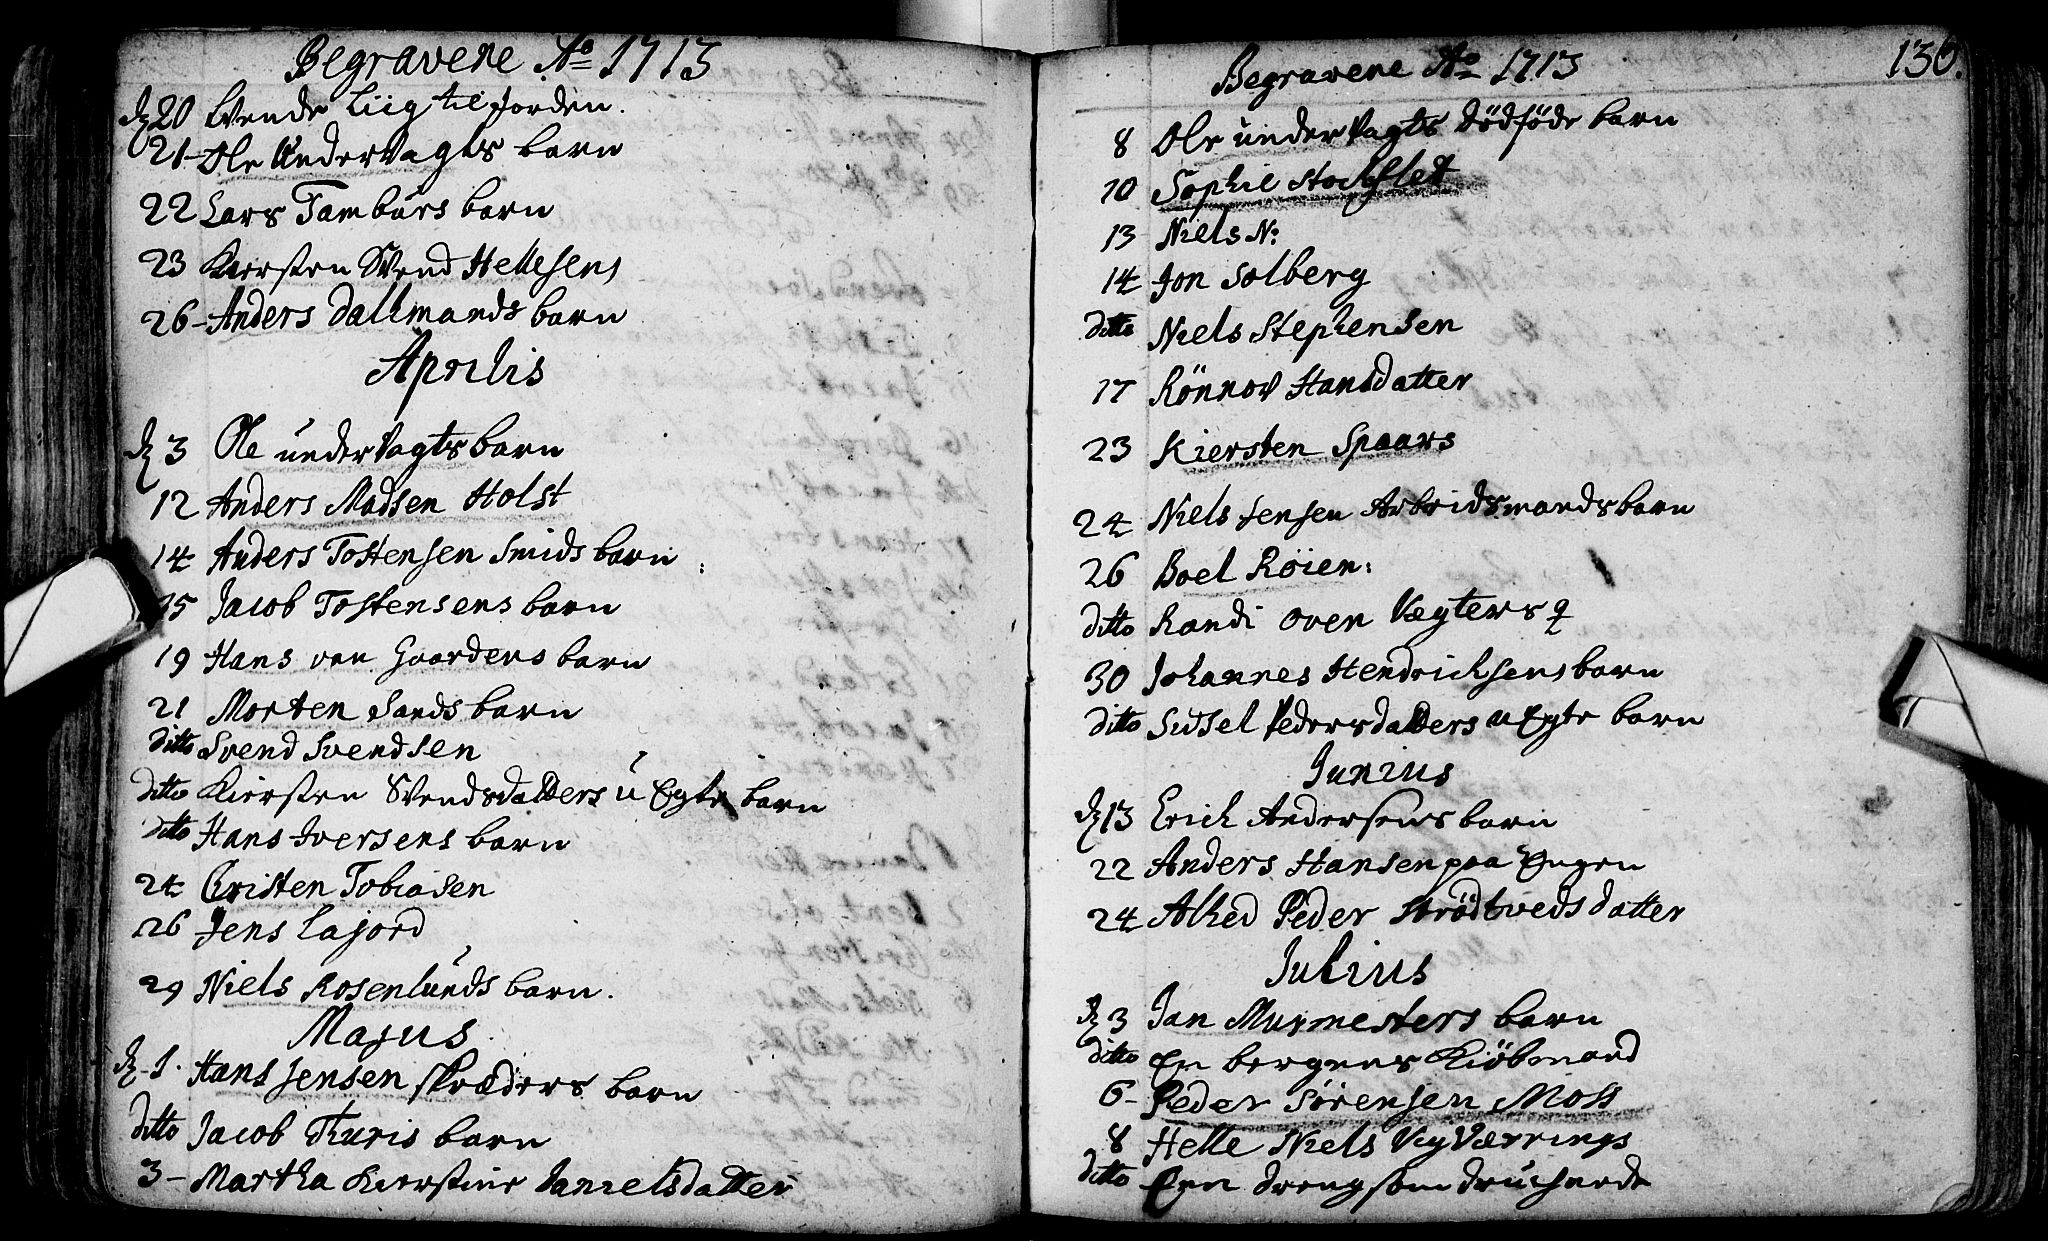 Begravene Ao 1713
d 20 Wende Liig til Jorden.
21 - Ole Undervagts barn
22 Lars Tambürs barn
23 Kiersten Svend Hellesens
26 - Anders Dallmands barn
Aprilis
d 3 Ole undervagts barn
12 Anders Madsen Holst
14 Anders Tostensen Smids barn
15 Jacob Tostensens barn
19 Hans von Gaardens barn
21 Morten Sands barn
ditto Svend Svendsen
ditto Kiersten Svendsdatters u Egte barn
ditto Hans Iversens barn
24 Cristen Tobiasen
26 Jens Lajord
29 Niels Rosenlunds barn.
Majus
d - 1. Hans Jensen skræders barn
ditto Jacob Thuris barn
3 - Martha Kierstine Danielsdatter
Begravene Ao 1713
130.
8 Ole undervagts dödföde barn
10 Sophie Stockflet
13 Niels N:
14 Jon Solberg
ditto Niels Stephensen
17 Rönnov Hansdatter
23 Kiersten Spaars
24 Niels Jensen Arbeidsmands barn
26 Boel Röien:
ditto Randi Oven Vægters q
30 Johannes Hendrichsens barn
ditto Sidsel Pedersdatters u Egte barn
Junius
d 13 Erich Andersens barn
22 Anders Hansen paa Engen
24 Alhed Peder Strödtveds datter
Julius
d 3 Jan Murmesters barn
ditto En bergens Kiöbmand
6 - Peder Sörensen Moss
8 Helle Niels Vegværrings
ditto Een dreng som druchnede